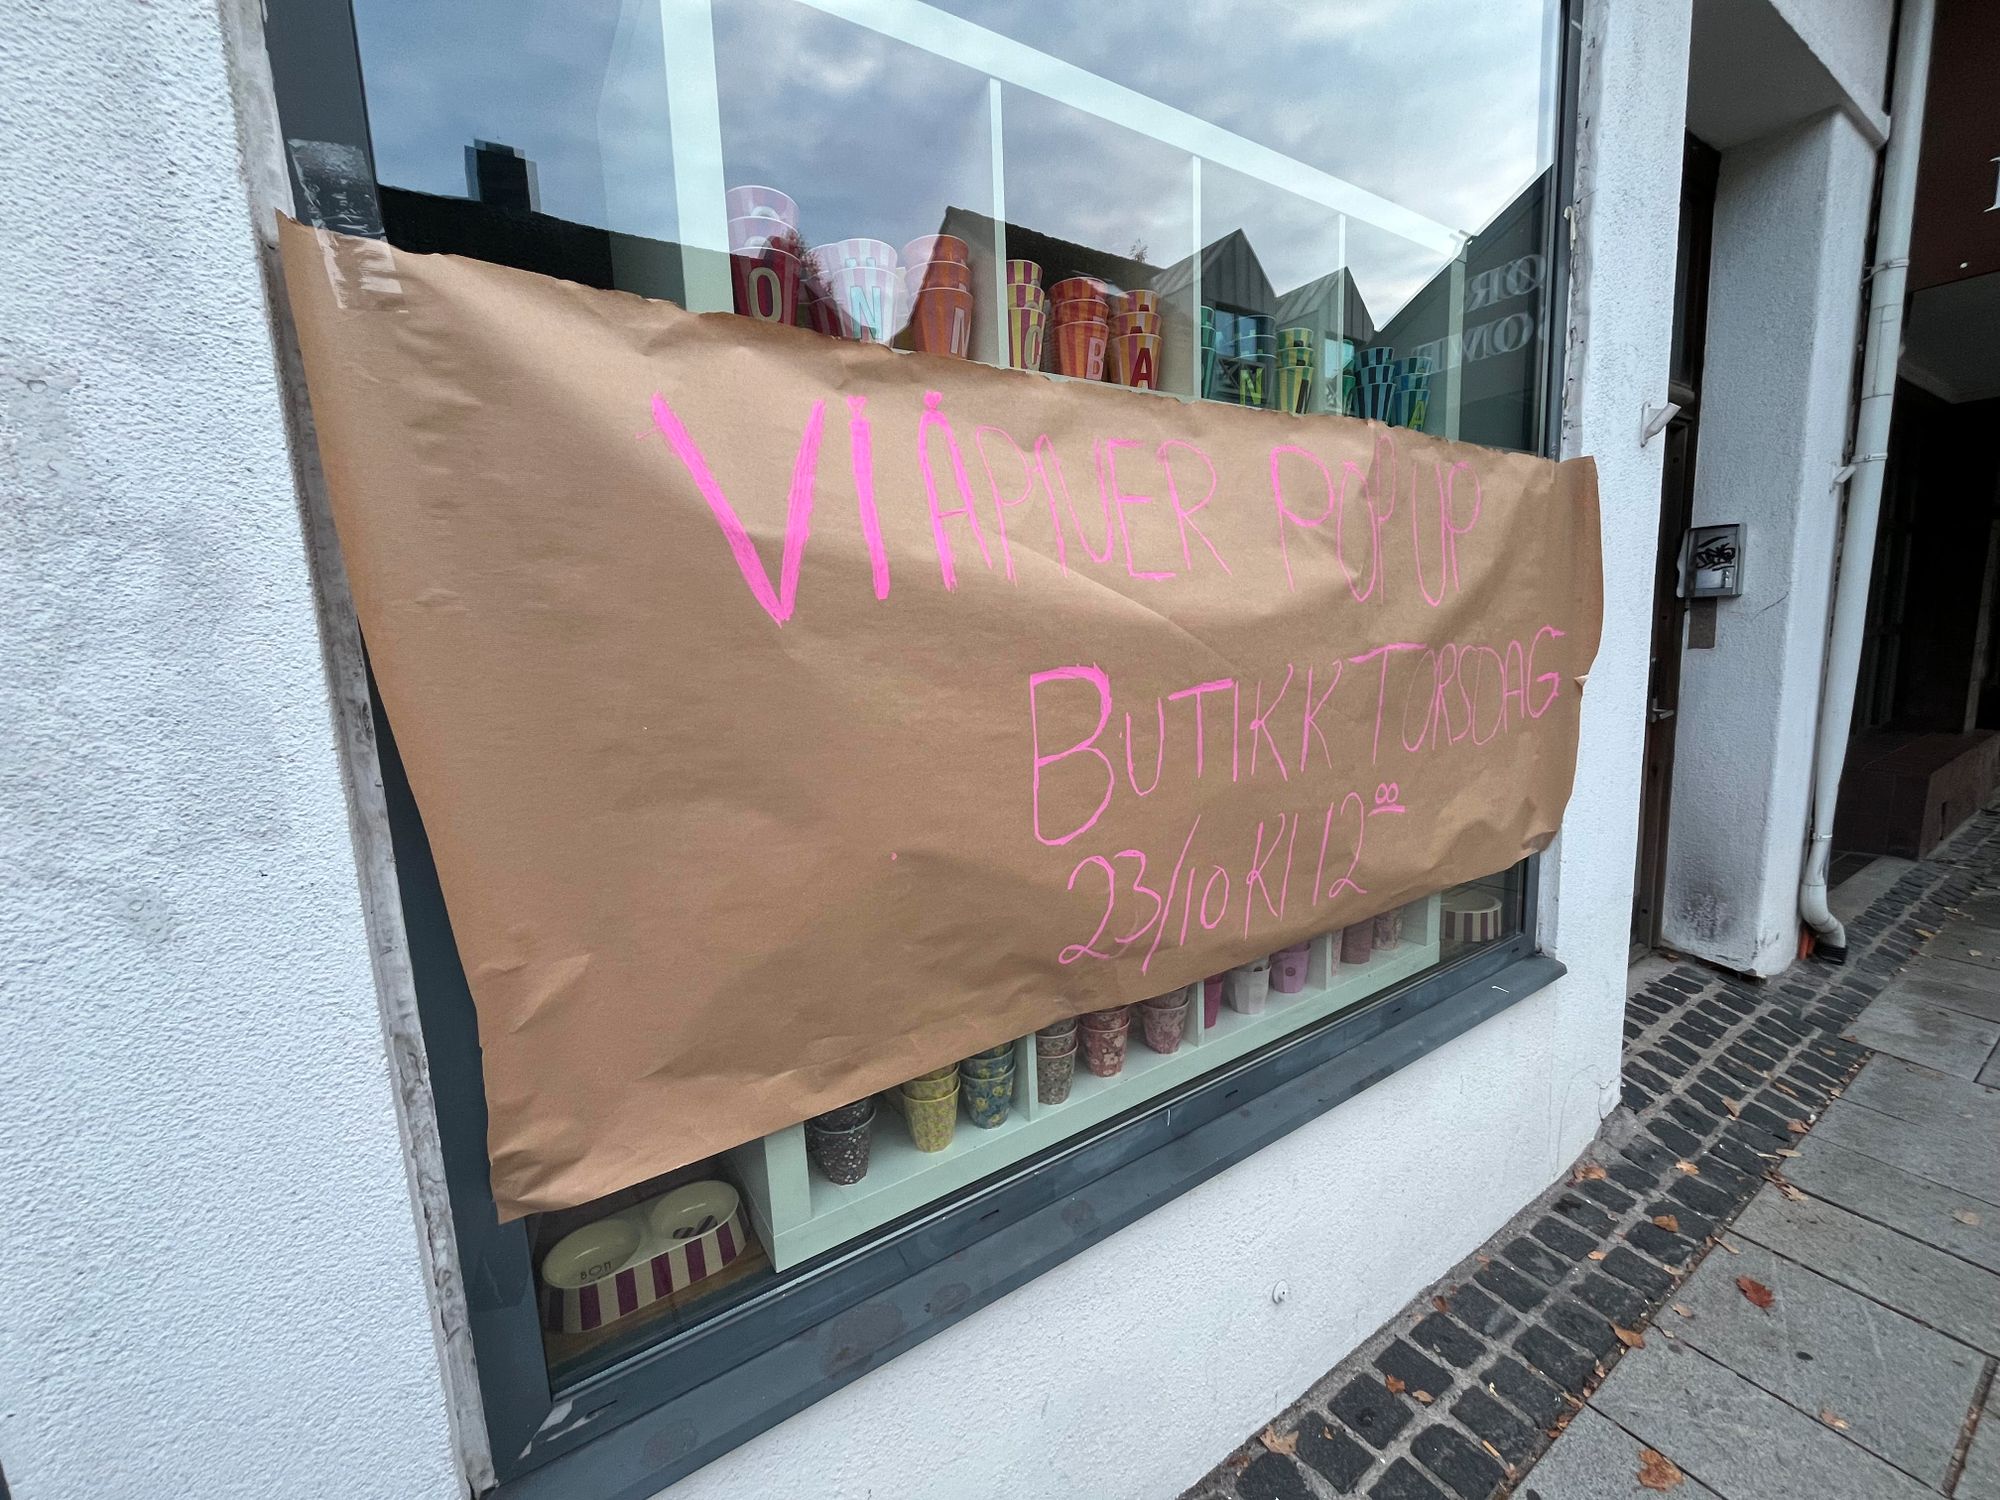 VI ÅPNER POP UP
BUTIKK TORSDAG
23/10 Kl 12⁰⁰
O
N
M
C
B
A
N
A
BON